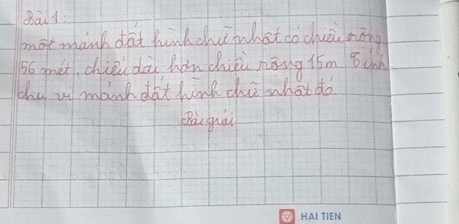 Bài 1:
một mảnh đất hình chữ nhật có chiều rộng
56 mét, chiều dài hơn chiều rộng 15m tính
chu vi mảnh đất hình chữ nhật đó
Bài giải
HAI TIEN